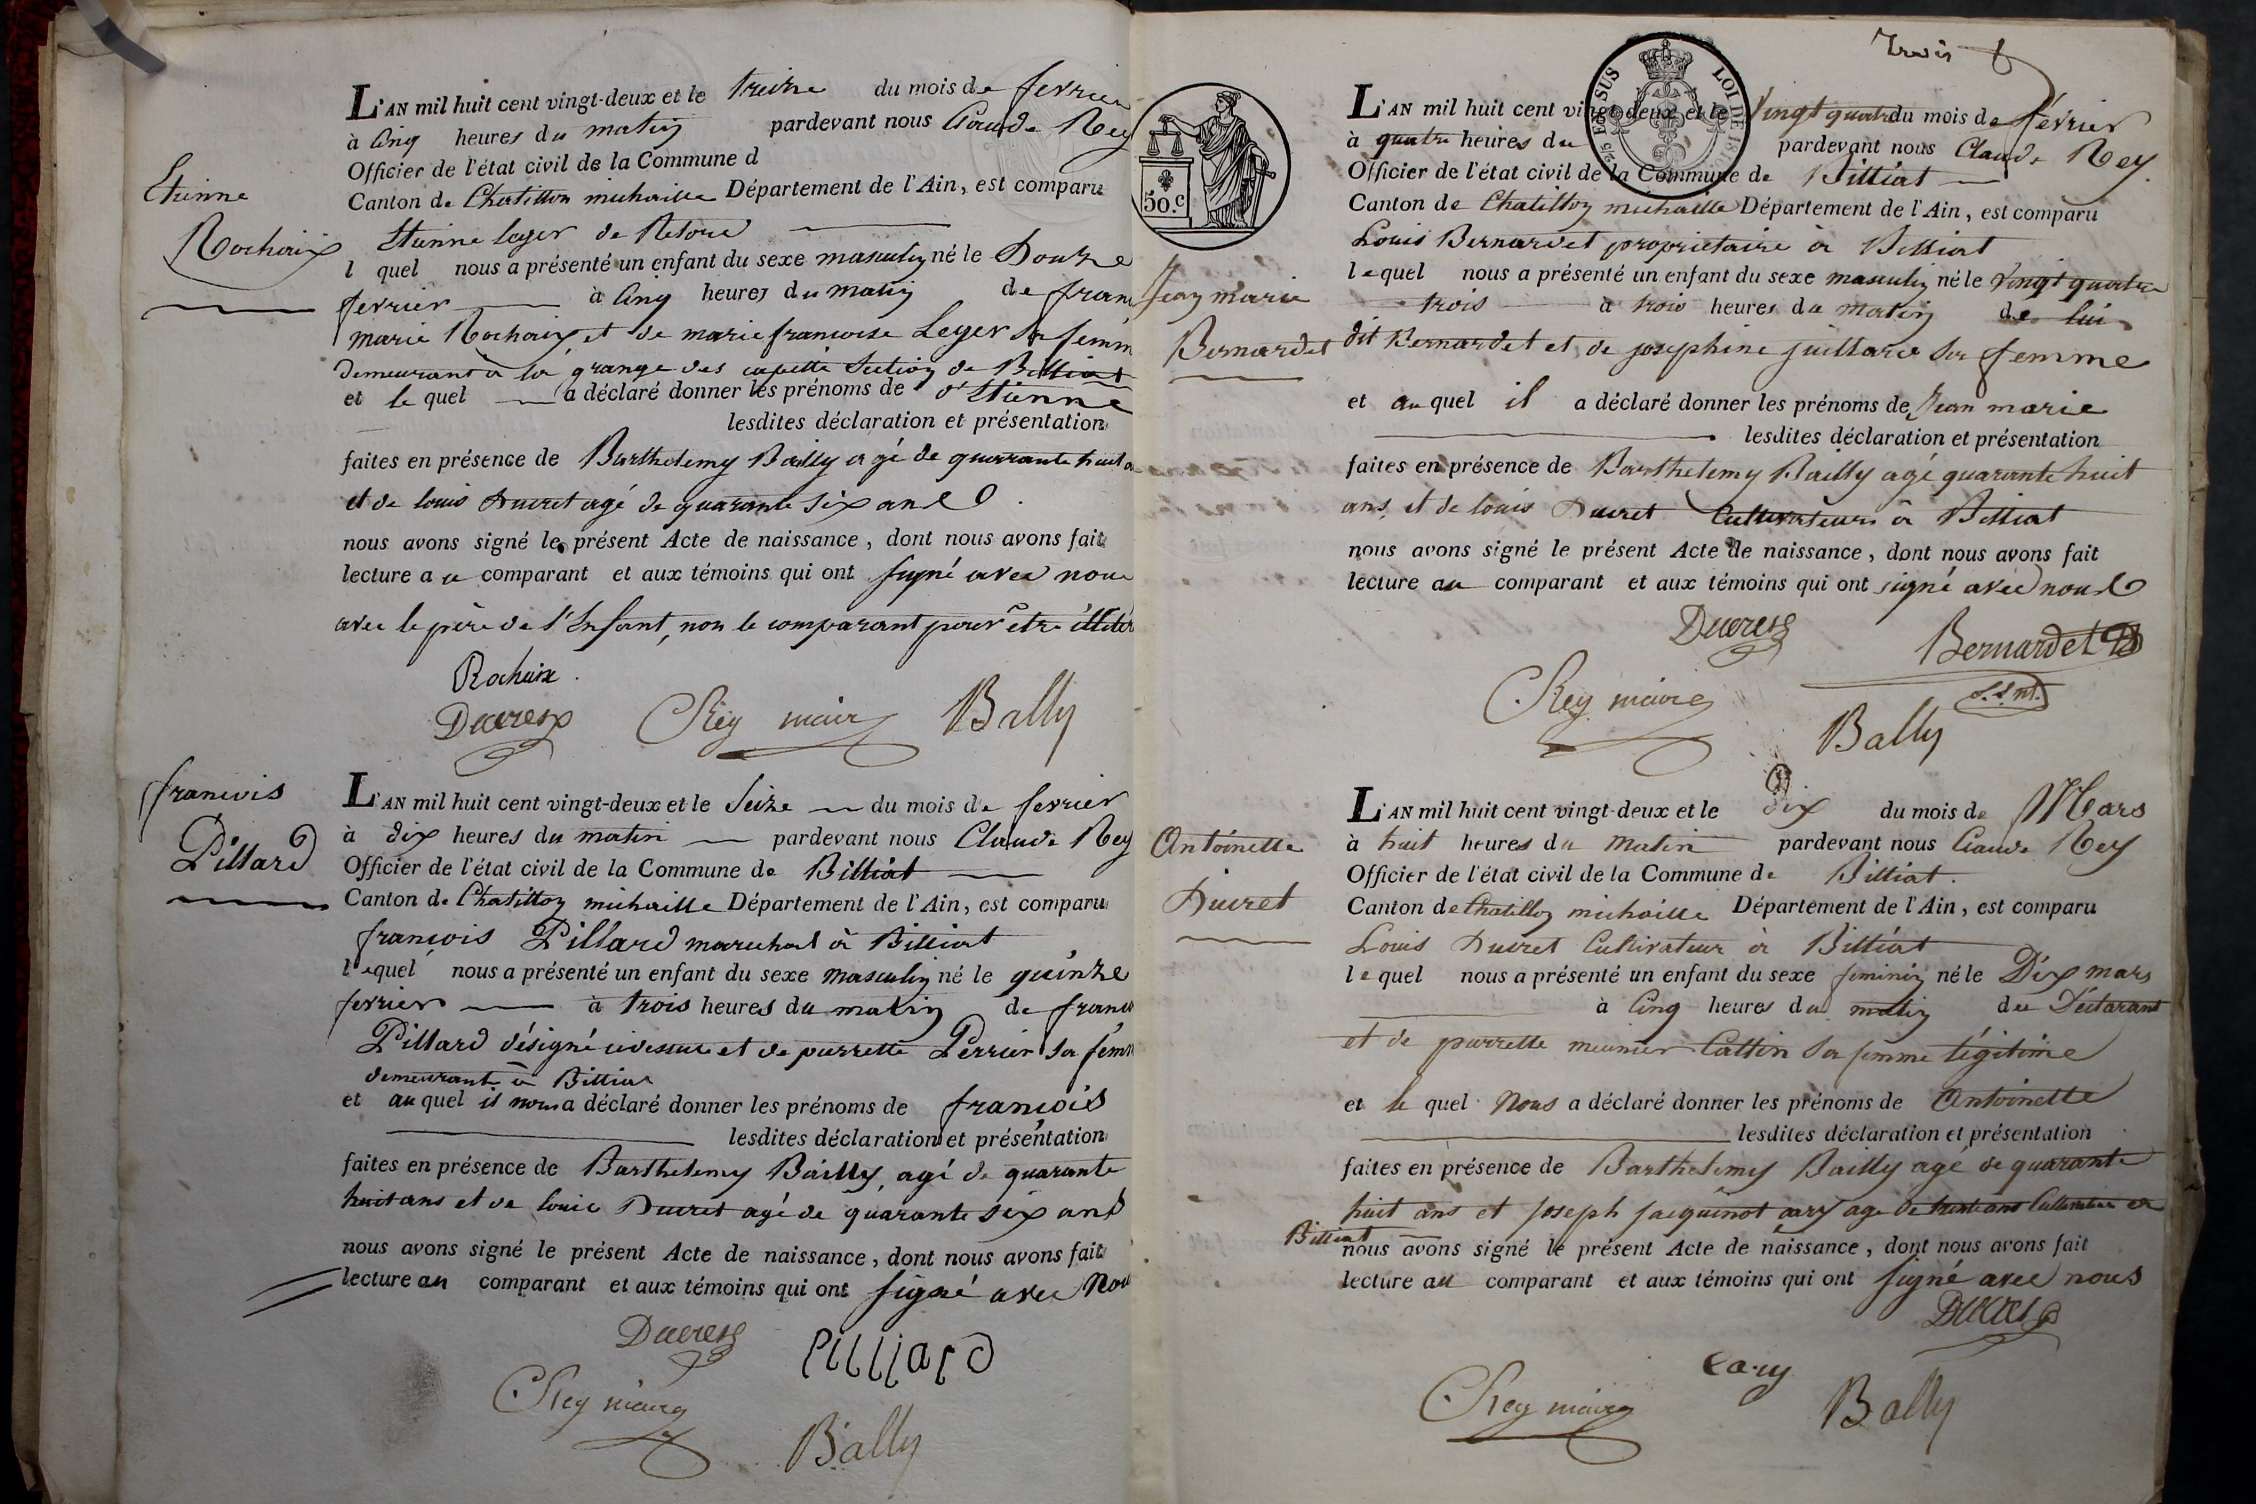 Etienne
Rochaix
L'AN mil huit cent vingt-deux et le treize du mois de fevrier
à Cinq heures du matin pardevant nous Claude Rey
Officier de l'état civil de la Commune d
Canton de Chatillon michaille Département de l'Ain, est comparu
Etienne leger de
l quel nous a présenté un enfant du sexe masculin né le Douze
fevrier à Cinq heures du matin de fran
marie Rochaix et de marie francoise Leger sa femm
demeurant à la grange des section de Billiat
et le quel a déclaré donner les prénoms de d'Etienne
lesdites déclaration et présentation
faites en présence de Barthelemy Bailly agé de quarante huit a
et de louis Ducret agé de quarante six ans
nous avons signé le présent Acte de naissance, dont nous avons fait
lecture au comparant et aux témoins qui ont signé avec nou
avec le père de l'Enfant, non le comparant pour être illiter
Rochaix
Ducret Rey maire Bally
francois
Pillard
L'AN mil huit cent vingt-deux et le Seize du mois de fevrier
à dix heures du matin pardevant nous Claude Rey
Officier de l'état civil de la Commune de Billiat
Canton de Chatillon michaille Département de l'Ain, est comparu
francois Pillard marechal à Billiat
lequel nous a présenté un enfant du sexe masculin né le quinze
fevrier à trois heures du matin de franco
Pillard désigné cidessus et de pierrette Perrier sa femm
demeurant à Billiat
et au quel il nous a déclaré donner les prénoms de francois
lesdites déclaration et présentation
faites en présence de Barthelemy Bailly, agé de quarante
huit ans et de louis Ducret agé de quarante six ans
nous avons signé le présent Acte de naissance, dont nous avons fait
lecture au comparant et aux témoins qui ont signé avec nou
Ducret Pilliard
Rey maire
Bally
trois
50.C
EN SUS LOI DE 1816
Jean marie
Bernardet
L'AN mil huit cent vingt-deux et le Vingt quatre du mois de février
à quatre heures du pardevant nous Claude Rey
Officier de l'état civil de la Commune de Billiat
Canton de Chatillon michaille Département de l'Ain, est comparu
Louis Bernardet proprietaire à Billiat
lequel nous a présenté un enfant du sexe masculin né le vingt quatre
trois à trois heures du matin de lui
dit Bernardet et de josephine juillard sa femme
et au quel il a déclaré donner les prénoms de Jean marie
lesdites déclaration et présentation
faites en présence de Barthelemy Bailly agé quarante huit
ans, et de louis Ducret Cultivateurs à Billiat
nous avons signé le présent Acte de naissance, dont nous avons fait
lecture au comparant et aux témoins qui ont signé avec nous
Ducret Bernardet
Rey maire
Bally
Antoinette
Ducret
L'AN mil huit cent vingt-deux et le dix du mois de Mars
à huit heures du Matin pardevant nous Claude Rey
Officier de l'état civil de la Commune de Billiat.
Canton de Chatillon michaille Département de l'Ain, est comparu
Louis Ducret Cultivateur à Billiat
lequel nous a présenté un enfant du sexe feminin né le Dix mars
à Cinq heures du matin du Déclarant
et de pierrette meunier Cattin sa femme légitime
et le quel Nous a déclaré donner les prénoms de Antoinette
lesdites déclaration et présentation
faites en présence de Barthelemy Bailly agé de quarante
huit ans et Joseph jacquinot cary agé de trente ans Cultivateur à
Billiat
nous avons signé le présent Acte de naissance, dont nous avons fait
lecture au comparant et aux témoins qui ont signé avec nous
Ducret
Cary
Rey maire Bally